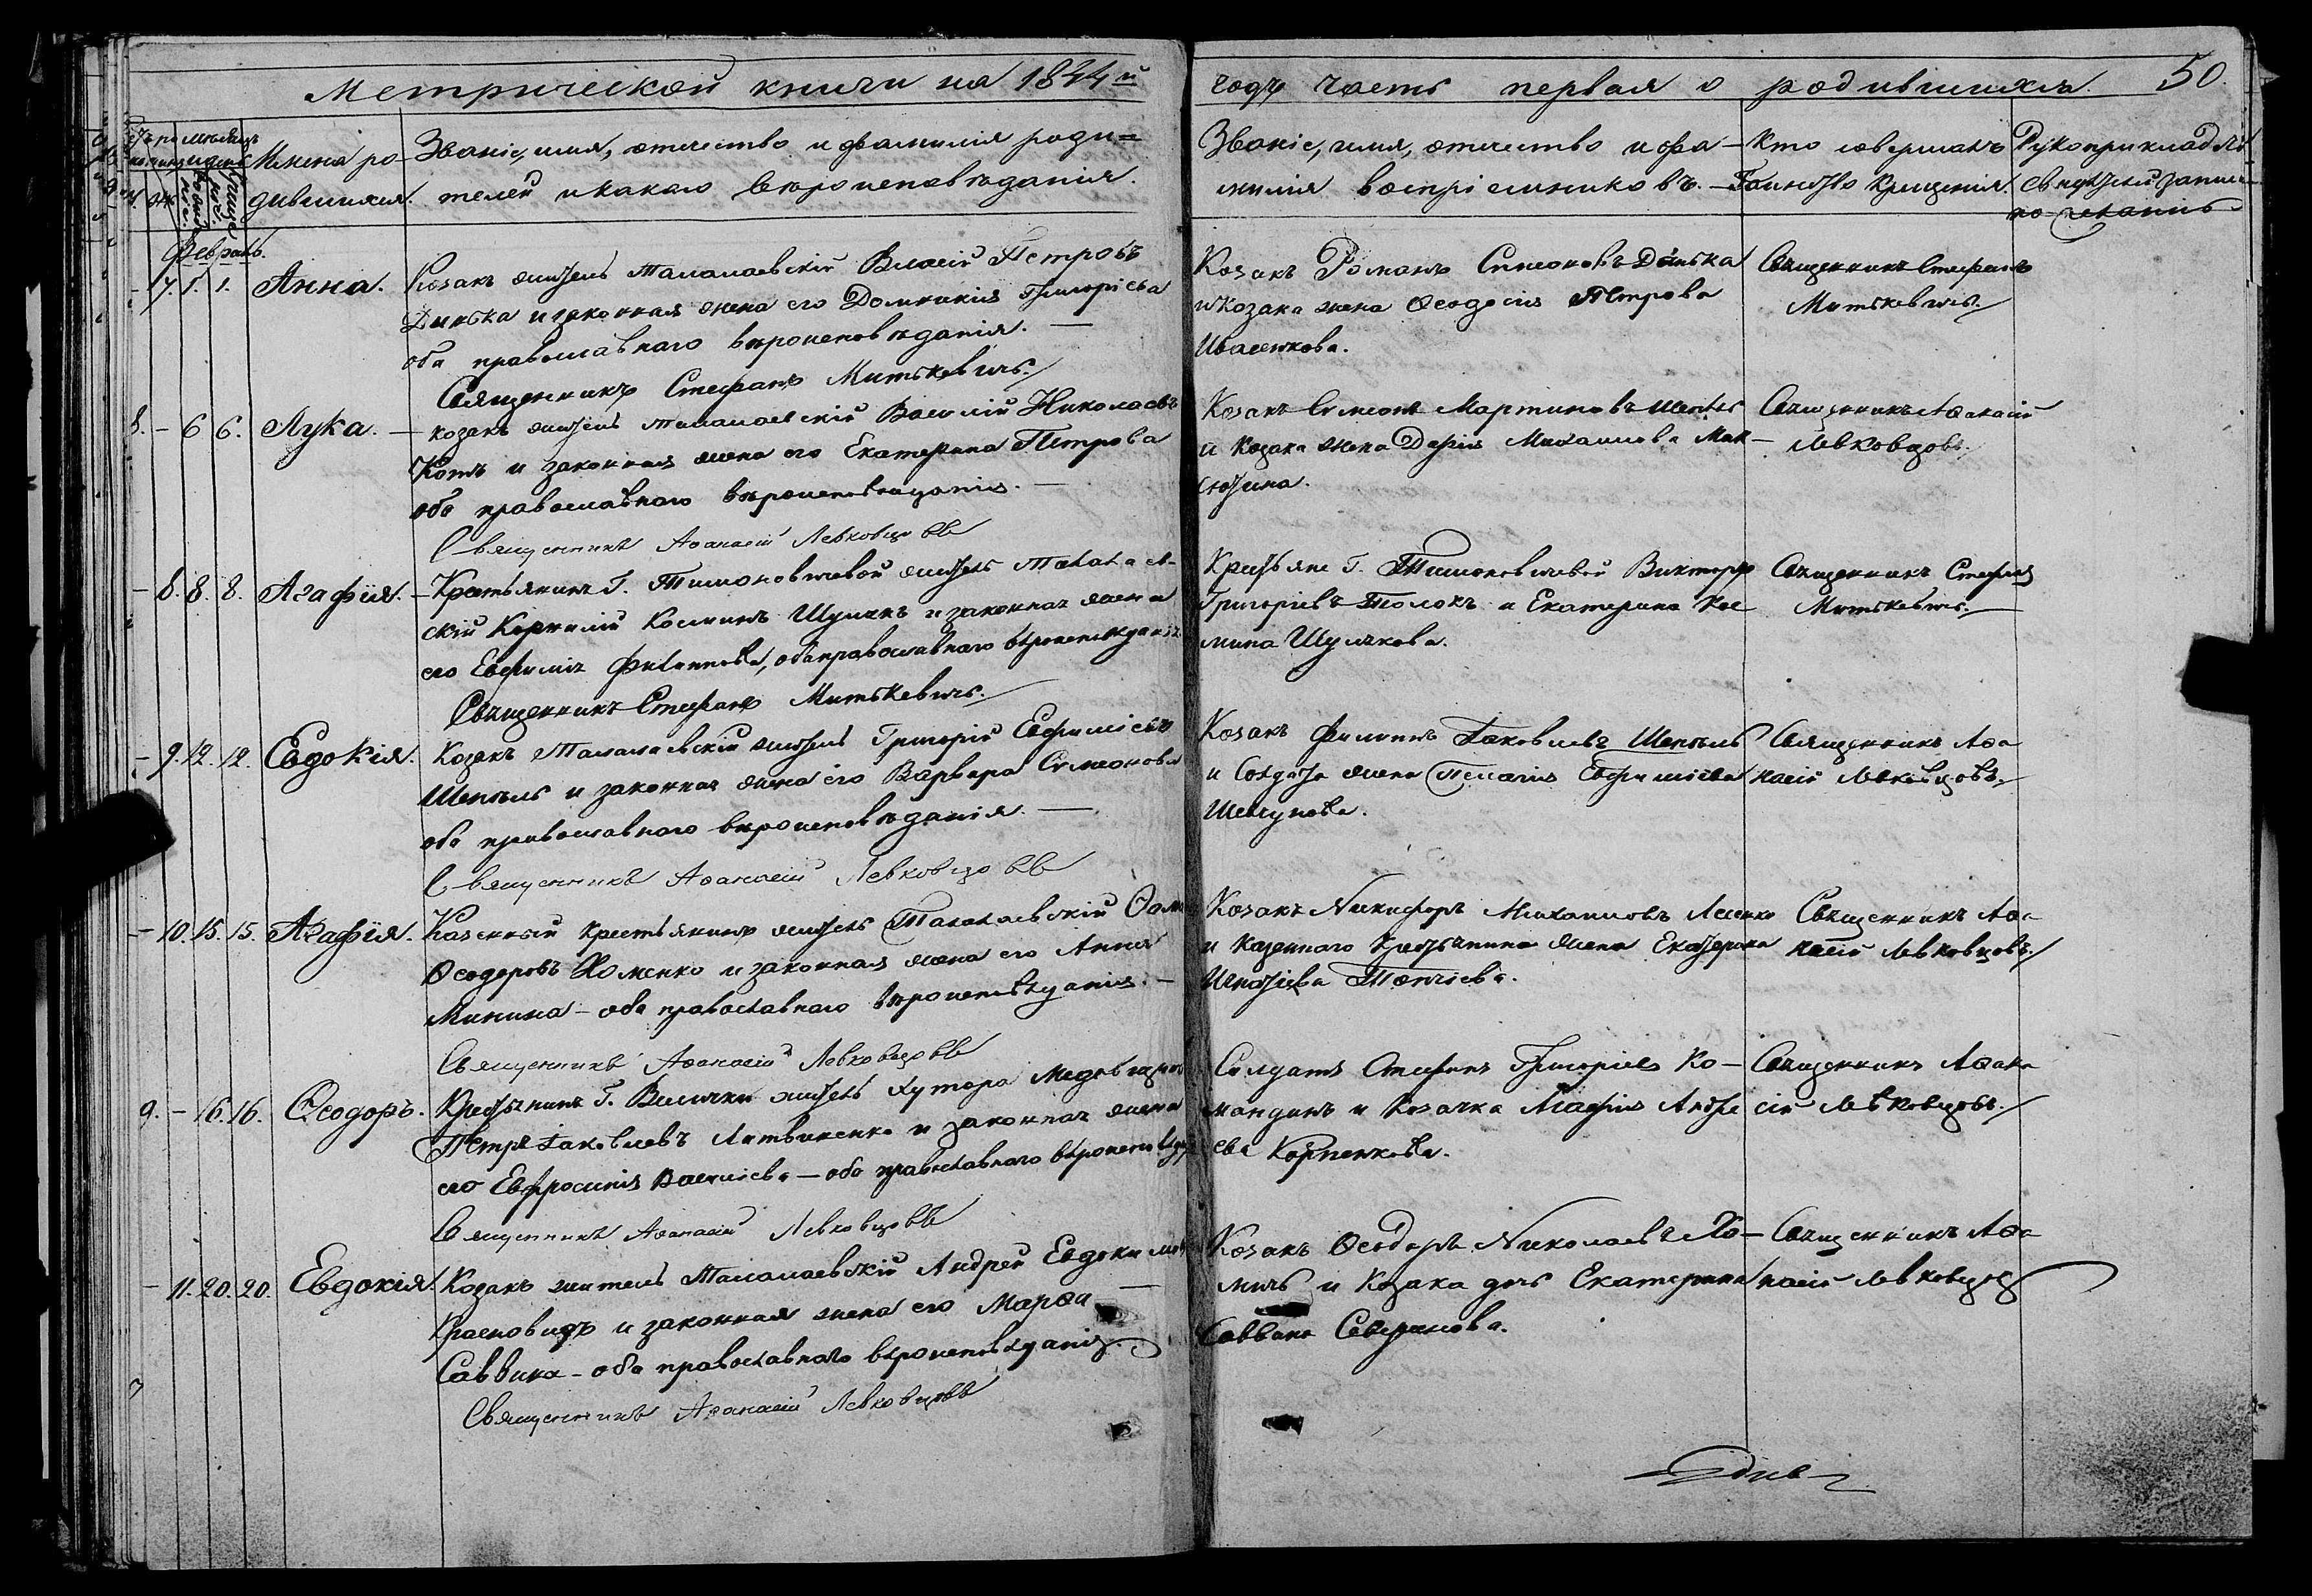 Метрической книги на 1844й
годъ часть первая о родившихся. 50.
Имена ро-
дившихся.
Званіе, имя, отчество и фамилія роди-
телей и какого вѣроисповѣданія.
Званіе, имя, отчество и фа-
милія воспріемниковъ.
Кто совершалъ
Таинство крещенія.
Рукоприкладст
свидѣтелей записи
по желанію
Февраль.
- 7. 1. 1. Анна.
Козакъ житель Талалаевскій Власій Петровъ
и законная жена его Домникія Григоріева
оба православнаго вѣроисповѣданія. —
Священникъ Стефанъ Митькевичъ.
Козакъ Романъ Симеоновъ
и козака жена Ѳеодосія Петрова
Ивасенкова.
Священникъ Стефанъ
Митькевичъ.
8. - 6 6. Лука.
козакъ житель Талалаевскій Василій Николаевъ
Котъ и законная жена его Екатерина Петрова
оба православнаго вѣроисповѣданія. —
Священникъ Аѳанасій Левковцовъ
Козакъ Симеонъ Мартиновъ
и козака жена Дарія Михаилова Мак-
сютина.
Священникъ Аѳанасій
Левковцовъ.
- 8. 8. 8. Агафія.
Крестьянинъ Г. Тимоновичевой житель Талалаев-
скій Корнилій Косминъ Шулякъ и законная жена
его Евфимія Филиппова, оба православнаго вѣроисповѣданія
Священникъ Стефанъ Митькевичъ.
Крестьяне Г. Тимоновичевой Викторъ
Григоріевъ Толокъ и Екатерина Кос-
мина Шулякова.
Священникъ Стефанъ
Митькевичъ.
- 9. 12. 12. Евдокія.
Козакъ Талалаевскій житель Григорій Евфиміевъ
Шепель и законная жена его Варвара Симеонова
оба православнаго вѣроисповѣданія. —
Священникъ Аѳанасій Левковцовъ
Козакъ Филиппъ Іаковлевъ Шепель
и Солдата жена Пелагія Евфиміева
Шевчукова.
Священникъ Аѳа-
насій Левковцовъ.
- 10. 15. 15. Агафія.
Казенный крестьянинъ житель Талалаевскій
Ѳеодоровъ Хоменко и законная жена его Анна
Минина - оба православнаго вѣроисповѣданія. —
Священникъ Аѳанасій Левковцовъ
Козакъ Никифоръ Михаиловъ
и казеннаго крестьянина жена Екатерина
Игнатіева
Священникъ Аѳа-
насій Левковцовъ.
9. - 16. 16. Ѳеодоръ.
Крестьянинъ Г. Велички житель хутора
Петръ Іаковлевъ Литвиненко и законная жена
его Евфросинія Василіева - оба православнаго вѣроисповѣд
Священникъ Аѳанасій Левковцовъ
Солдатъ Стефанъ Григоріевъ Ко-
мандинъ и козачка Агафія Андре
ева Корпенкова.
Священникъ Аѳана
сій Левковцовъ.
- 11. 20. 20. Евдокія.
Козакъ житель Талалаевскій Андрей Евдокимов
Красновидъ и законная жена его Марѳа
Саввина - оба православнаго вѣроисповѣданія.
Священникъ Аѳанасій Левковцовъ
Козакъ Ѳеодоръ Николаевъ Хо-
мичъ и козака дочь Екатерина
Саввина Северинова.
Священникъ Аѳа
насій Левковцовъ